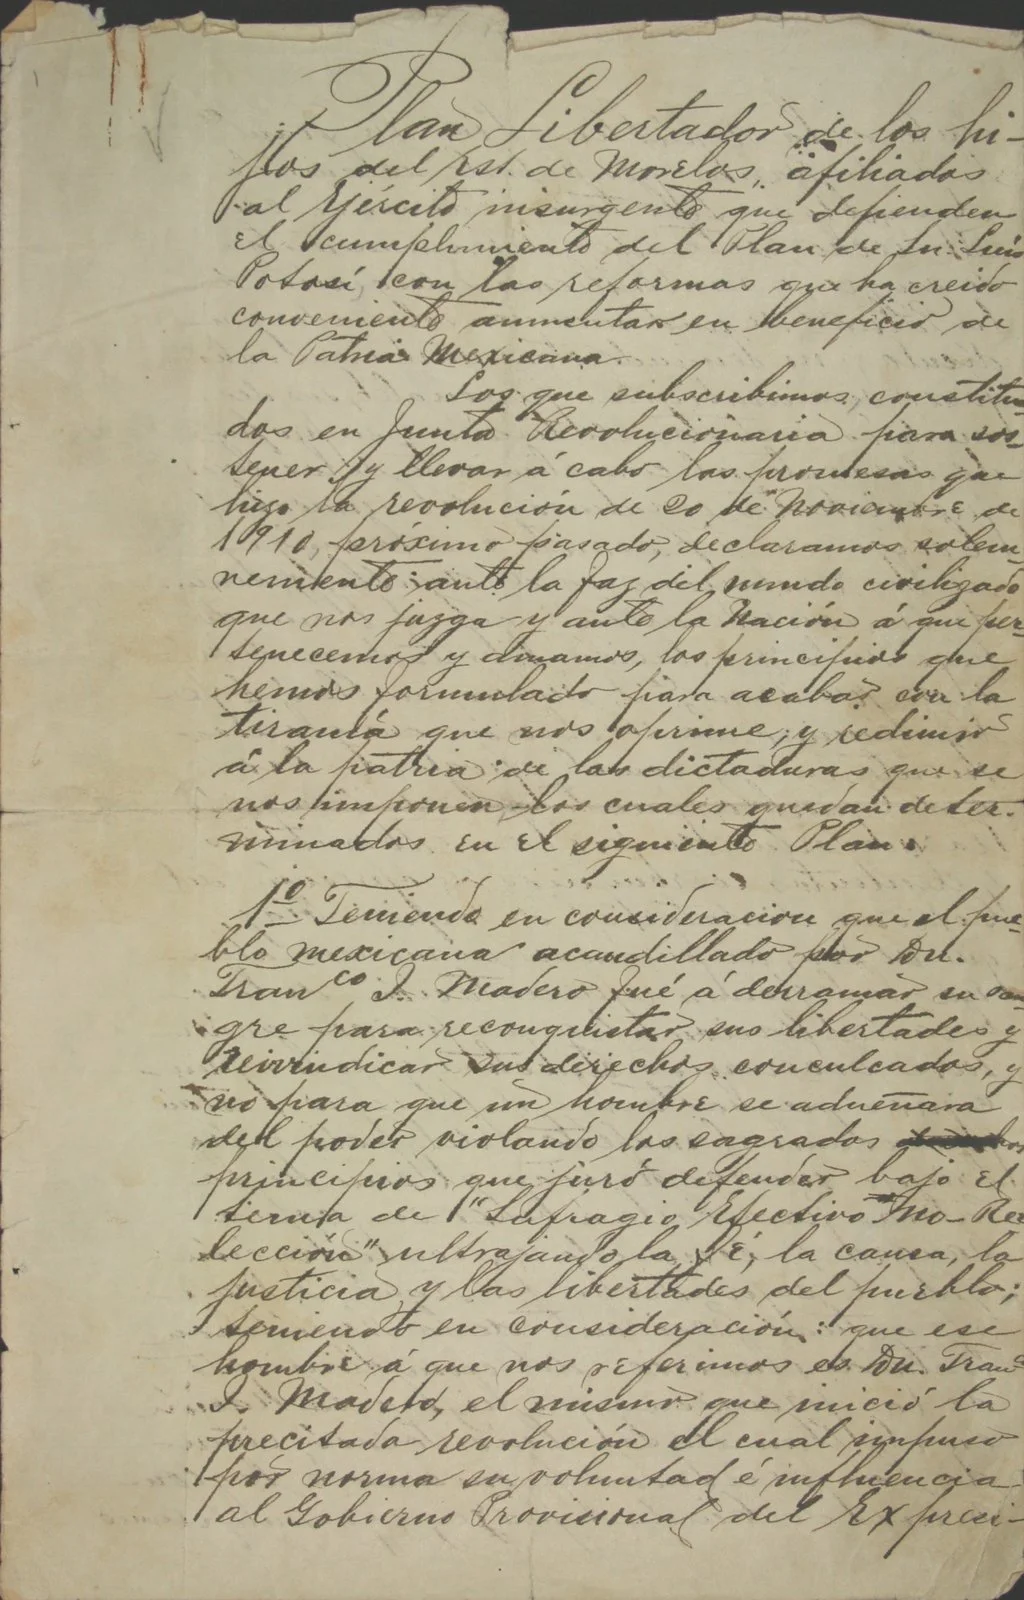 Plan Libertador de los hi-
jos del Est. de Morelos, afiliados
al Ejército insurgente que defienden
el cumplimiento del Plan de Sn. Luis
Potosí, con las reformas que ha creido
conveniente aumentar en beneficio de
la Patria Mexicana.
Los que subscribimos, constitui
dos en Junta Revolucionaria para sos-
tener y llevar á cabo las promesas que
hizo la revolución de 20 de Noviembre de
1910, próximo pasado, declaramos solem-
nemente ante la faz del mundo civilizado
que nos juzga y ante la Nación á que per-
tenecemos y amamos, los principios que
hemos formulado para acabar con la
tiranía que nos oprime, y redimir
á la patria de las dictaduras que se
nos imponen, los cuales quedan deter-
minados en el siguiente Plan.
1º Teniendo en consideracion que el pue-
blo mexicana acaudillado por Dn.
Franco I. Madero fué á derramar su san-
gre para reconquistar sus libertades y
reivindicar sus derechos conculcados, y
no para que un hombre se adueñara
del poder violando los sagrados
principios que juró defender bajo el
tema de "Sufragio Efectivo No-Ree
lección" ultrajando la fé, la causa, la
justicia y las libertades del pueblo;
teniendo en consideración: que ese
hombre á que nos referimos es Dn. Franco
I. Madero, el mismo que inició la
precitada revolución el cual impuso
por norma su voluntad é influencia
al Gobierno Provisional del Ex presi-